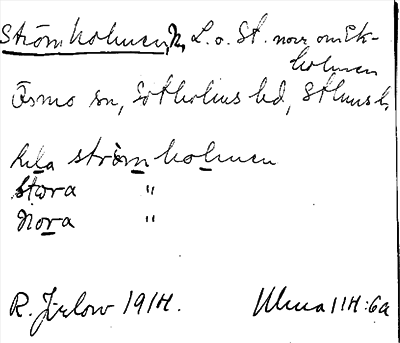 Strömholmen, L. o. St. norr om Ek-
holmen
Ösmo sn, Sotholms hd, Sthlms l.
Lilla strömholmen
Stora "
Norra "
R. Jirlow 1914.